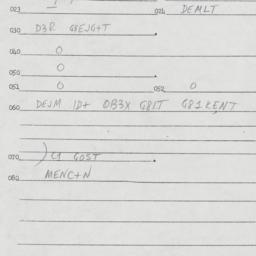 023 024 DEMLT
030 D3R G8EJG+T
040 0
050 0
051 0 052 0
060 DEJM ID+ OB3X G8IT G81KENT
070 C1 GOST
080 MENC+N